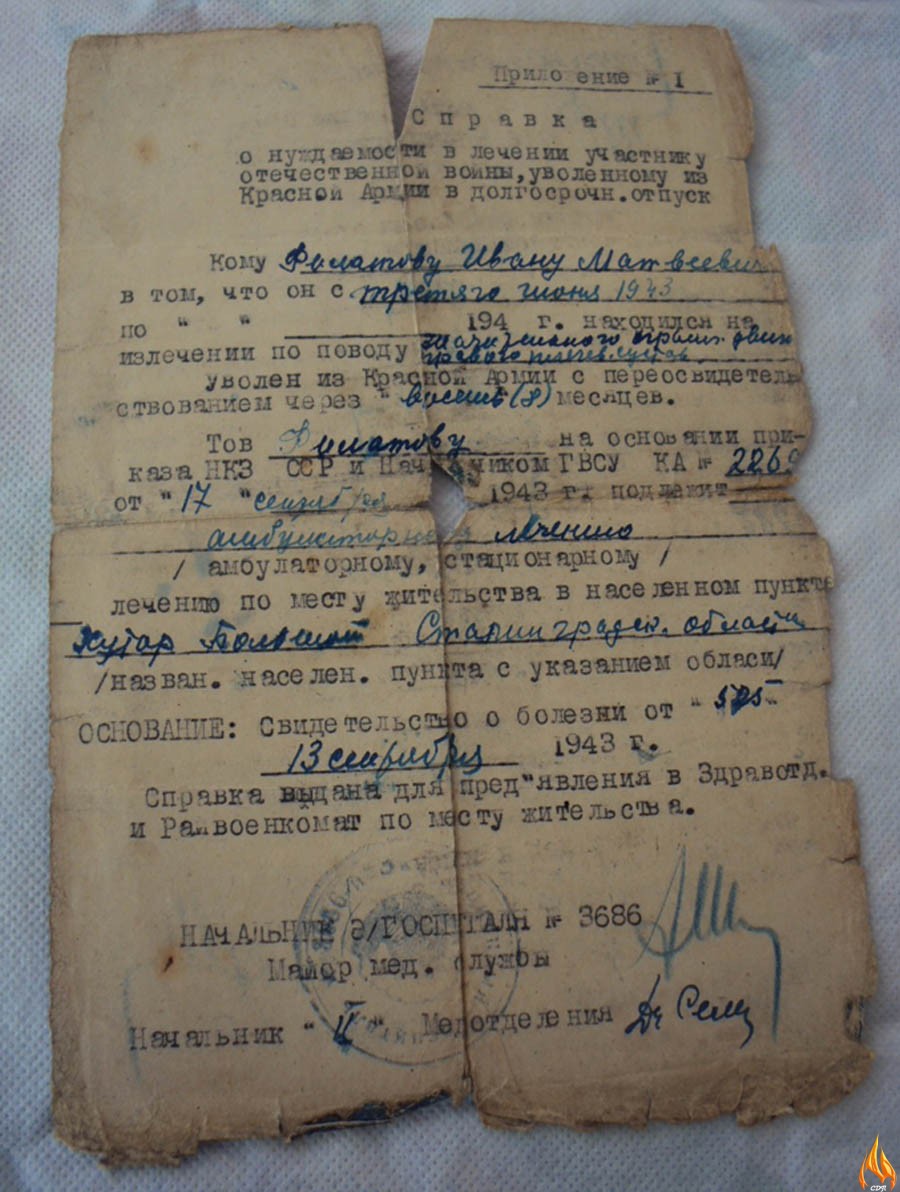 Приложение № 1
Справка
о нуждаемости в лечении участнику
отечественной войны, уволенному из
Красной Армии в долгосрочн. отпуск
Кому Филатову Ивану Матвеевич
в том, что он с третяго июня 1943
по " " 194 г. находился на
излечении по поводу значительного огранич. движ
правого плечев. сустав
уволен из Красной Армии с переосвидетель
ствованием через " восемь (8) месяцев.
Тов Филатову на основании при-
каза НКЗ ССР и Начальником ГВСУ КА № 226
от " 17 " сентября 1943 г. подлежит
амбулаторному лечению
/ амбулаторному, стационарному /
лечению по месту жительства в населенном пункте
Хутор Сталинградск. области
/назван. населен. пункта с указанием обласи/
ОСНОВАНИЕ: Свидетельство о болезни от "
13 сентября 1943 г.
Справка выдана для пред"явления в Здравотд.
и Райвоенкомат по месту жительства.
НАЧАЛЬНИК Э/ГОСПИТАЛЯ № 3686
Майор мед. службы
Начальник " II " Медотделения
CDR